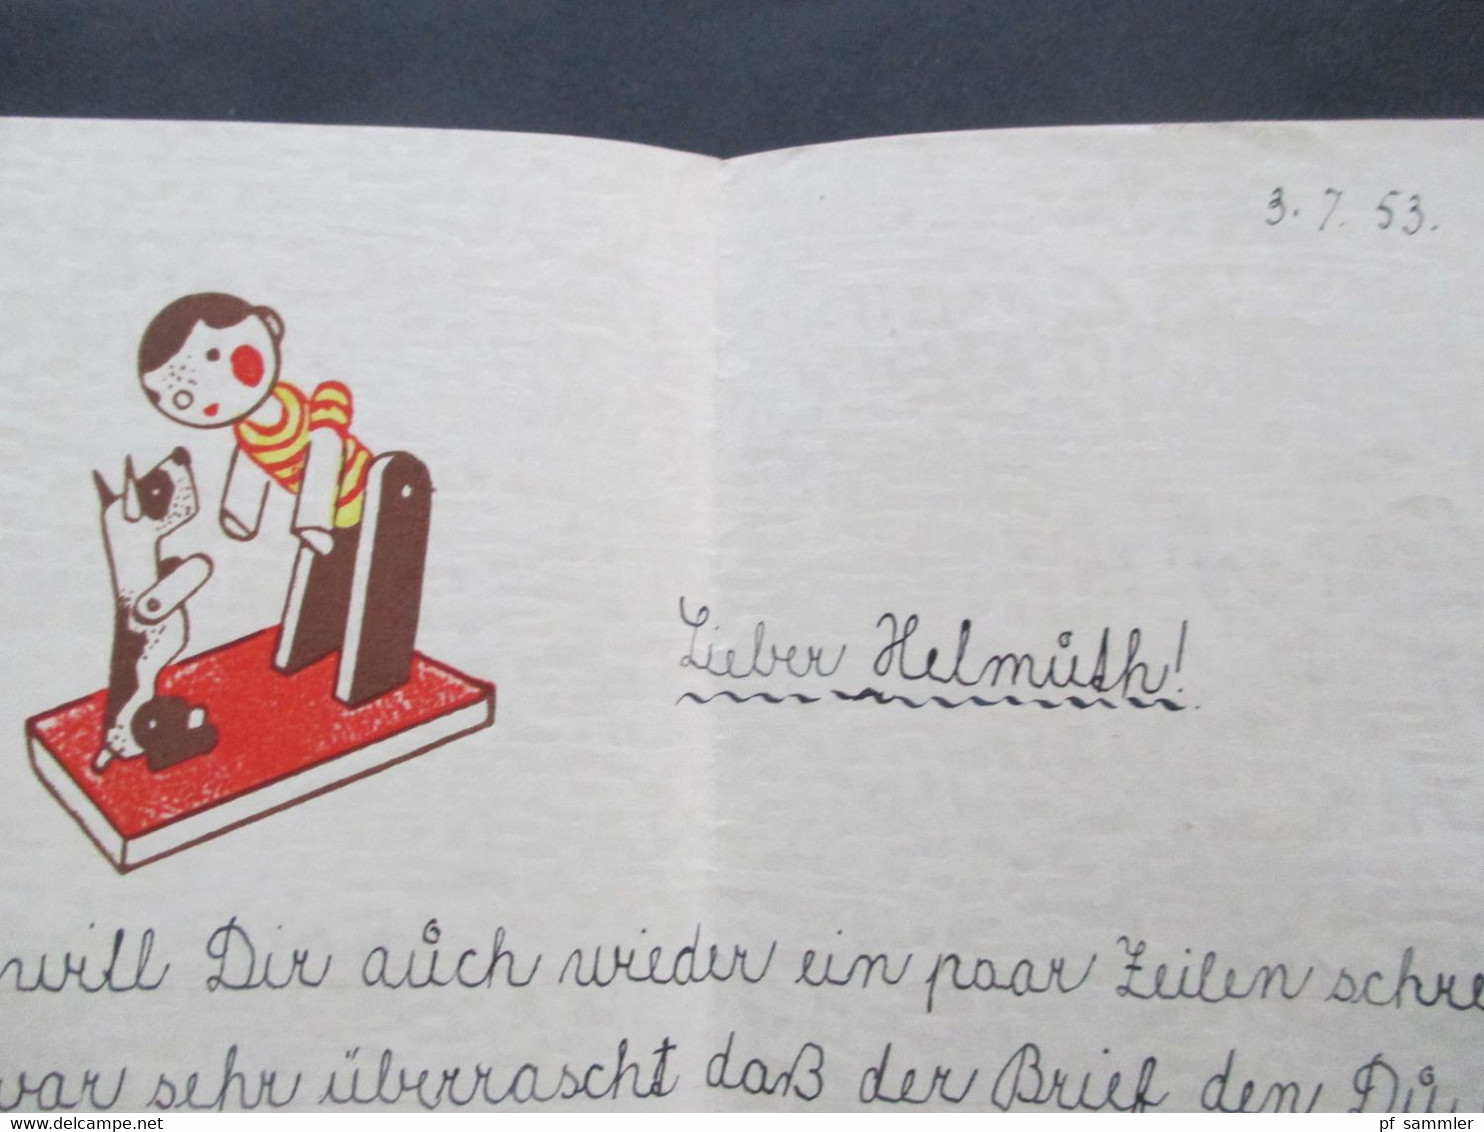 3. 7. 53.
Lieber Helmuth!
will Dir auch wieder ein paar Zeilen schre
war sehr überrascht daß der Brief den Du
www.delcampe.net
pf_sammler